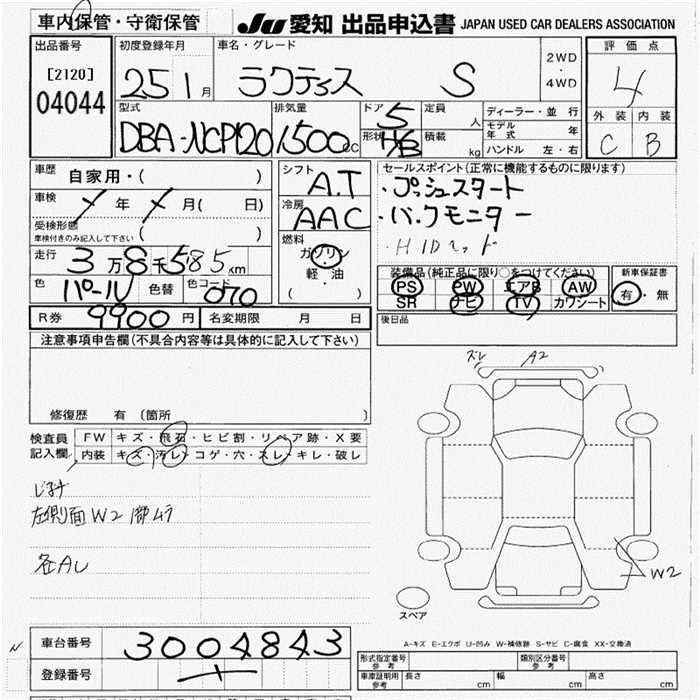 車内保管・守衛保管
JU 愛知 出品申込書 JAPAN USED CAR DEALERS ASSOCIATION
出品番号
[2120]
04044
初度登録年月
25 1月
車名・グレード
ラクティス S
2WD
・
4WD
評価点
4
外装 内装
C B
型式
DBA-NCP120
排気量
1500cc
ドア 5
形状 H/B
定員 人
積載 kg
ディーラー・並行
モデル年式 年
ハンドル 左・右
車歴 自家用・( )
車検 年 月( 日)
受検形態
車検付きのみ記入して下さい ( )
走行 3万8千585km
色 パール 色替 色コード 070
シフト A.T
冷房 AAC
燃料
ガソリン
軽・油
( )
セールスポイント(正常に機能するものに限ります)
・プッシュスタート
・バックモニター
・HID
装備品(純正品に限り○をつけてください)
PS PW エアB AW
SR ナビ TV カワシート
新車保証書
有・無
後日品
R券 9900円 名変期限 月 日
注意事項申告欄(不具合内容等は具体的に記入して下さい)
修復歴 有 〔箇所 〕
検査員記入欄
FW キズ・飛石・ヒビ割・リペア跡・X要
内装 キズ・汚レ・コゲ・穴・スレ・キレ・破レ
左側面W2 1部ムラ
各AU
ズレ A2
W2
スペア
A-キズ E-エクボ U-凹み W-補修跡 S-サビ C-腐食 XX-交換済
車台番号 3004843
登録番号
形式指定番号 参考
類別区分番号 参考
車庫証明用 参考 長さ cm 幅 cm 高さ cm